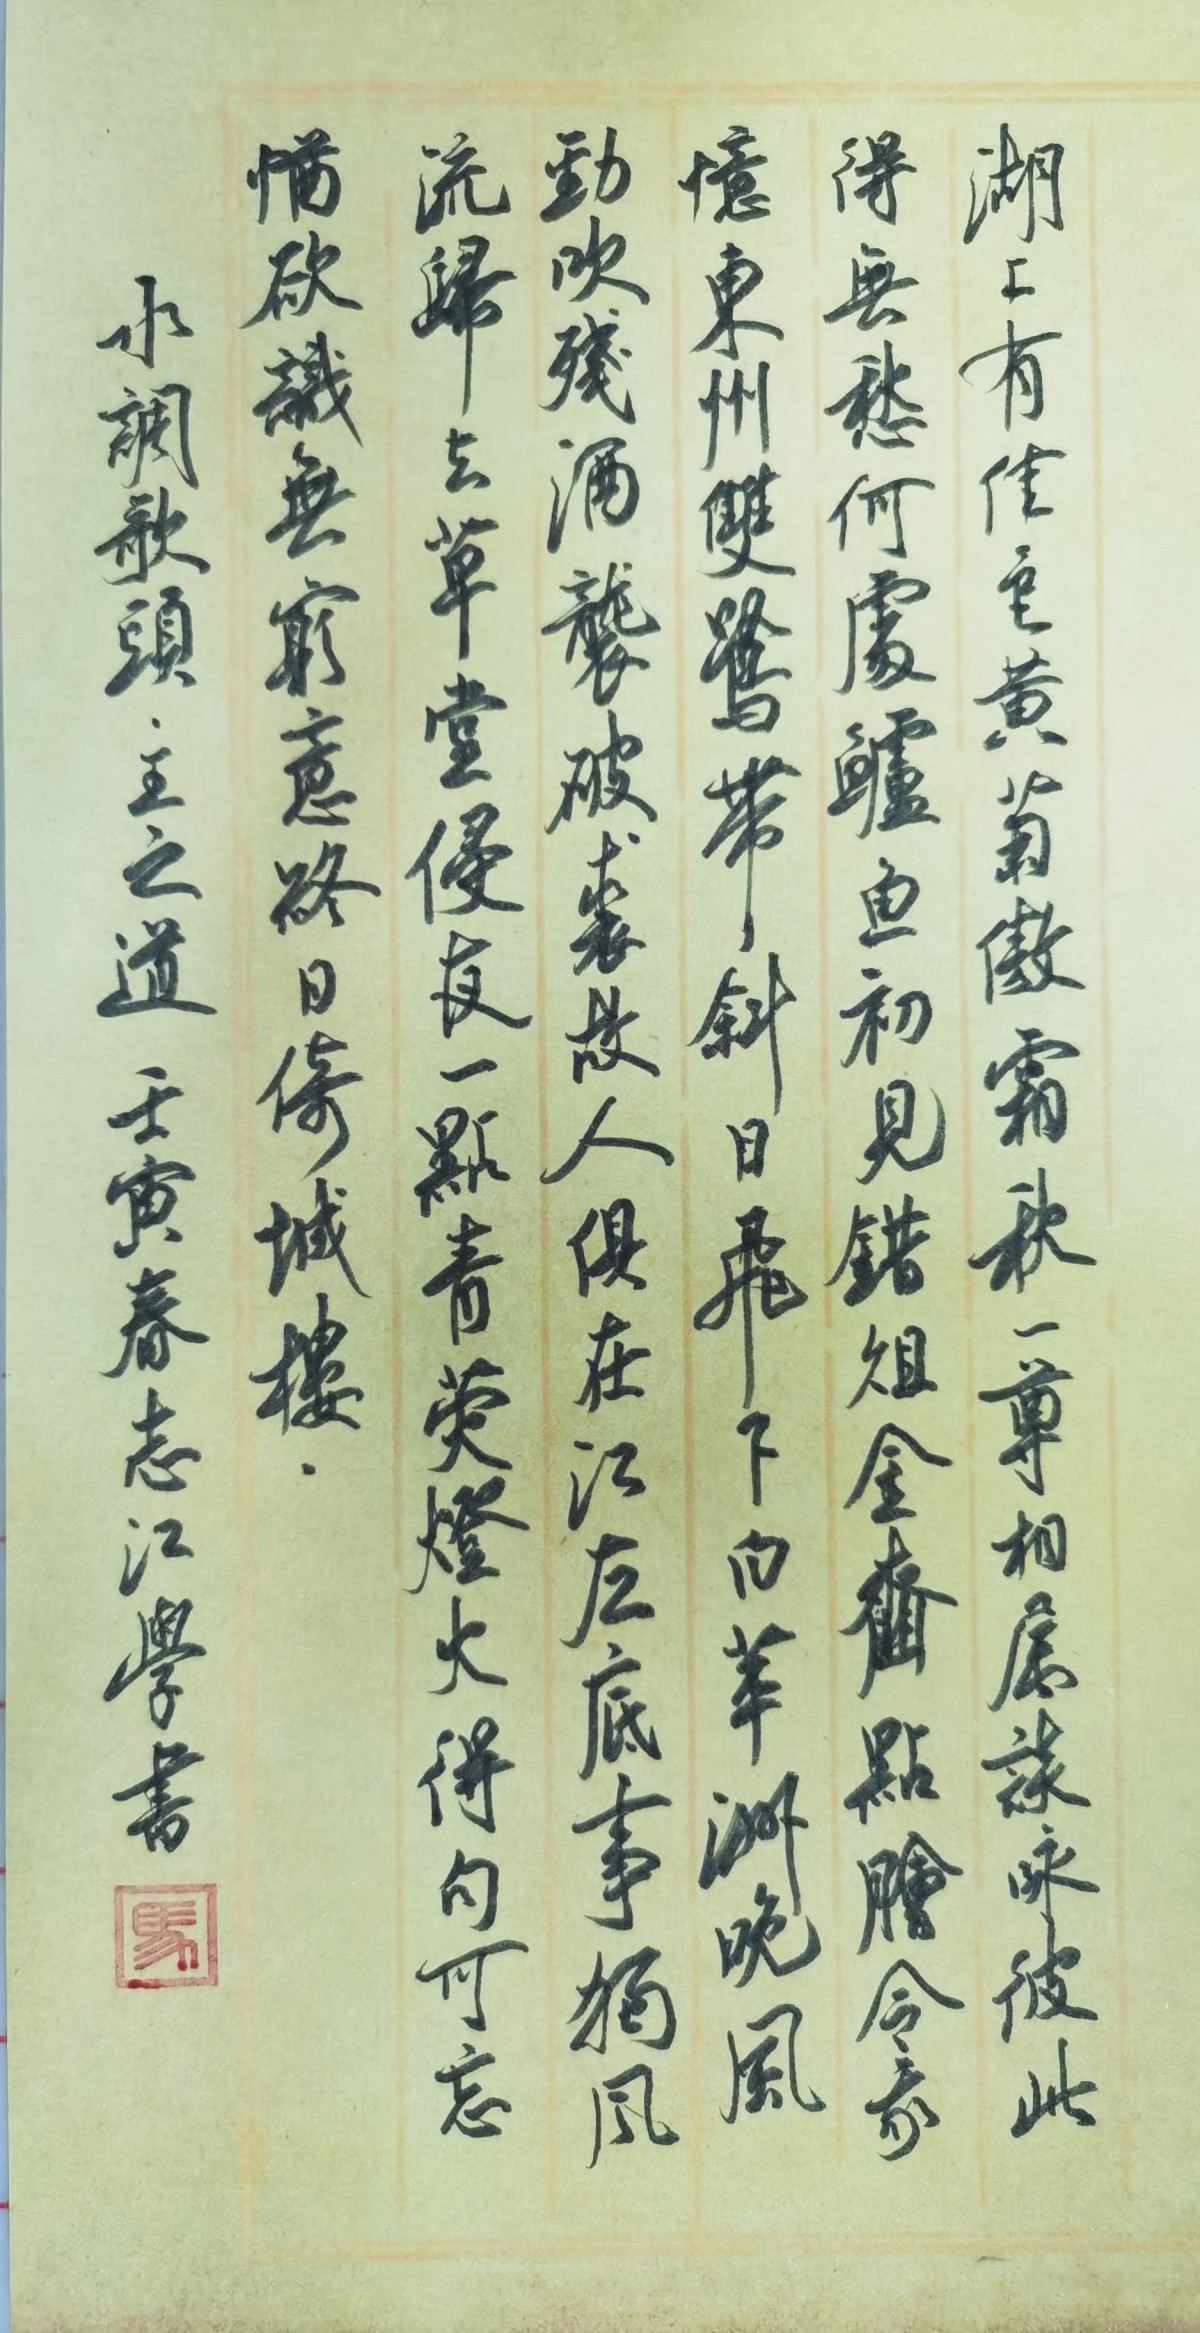 湖上有佳色黄菊傲霜秋一尊相属談咏彼此
得無愁何處鱸魚初見錯俎金齏點膾令我
憶東州雙鷺帶斜日飛下白苹洲晚風
勁吹殘酒襲破裘故人俱在江左底事獨風
流歸去草堂侵夜一點青荧燈火得句可忘
欲識無窮意終日倚城樓.
水調歌頭.王之道 壬寅春志江學書
馬